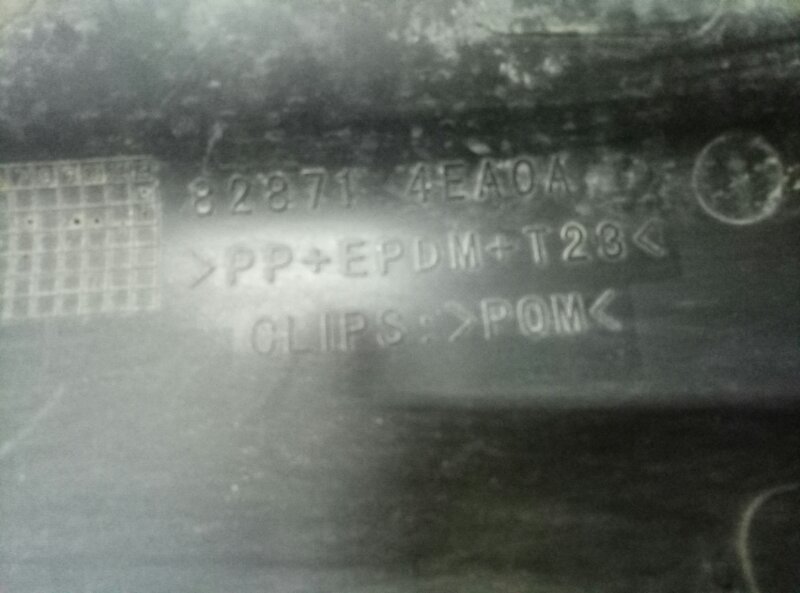 82871 4EA0A
>PP+EPDM+T23<
CLIPS:>POM<